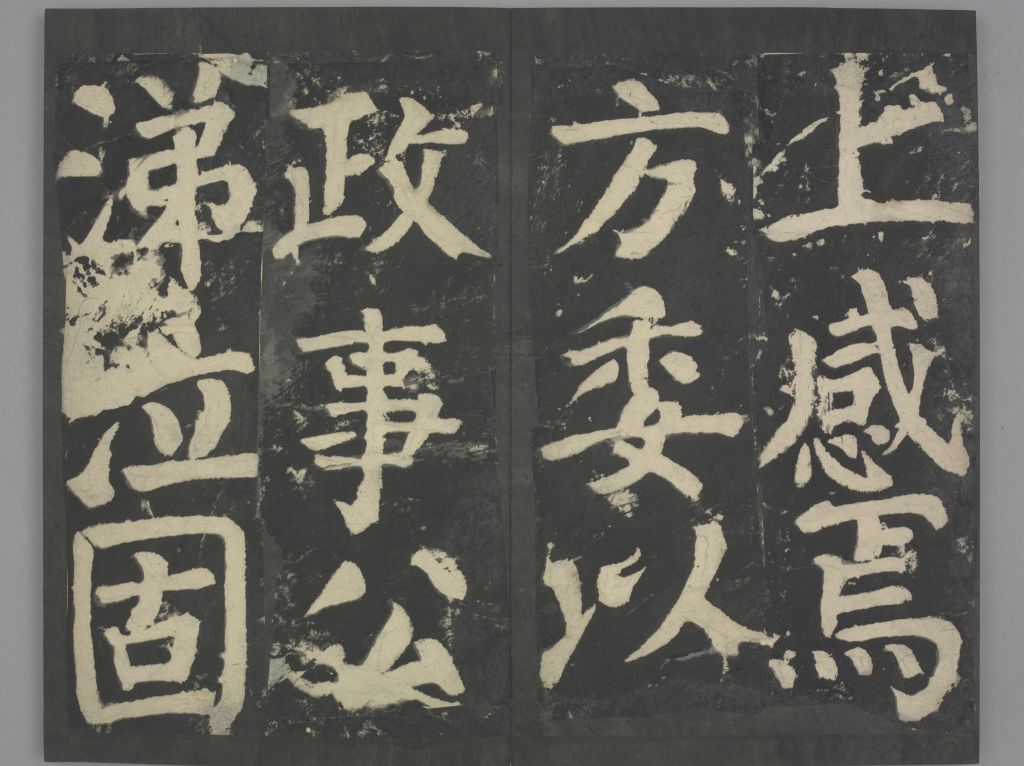 上感焉
方委以
政事公
涕泣固